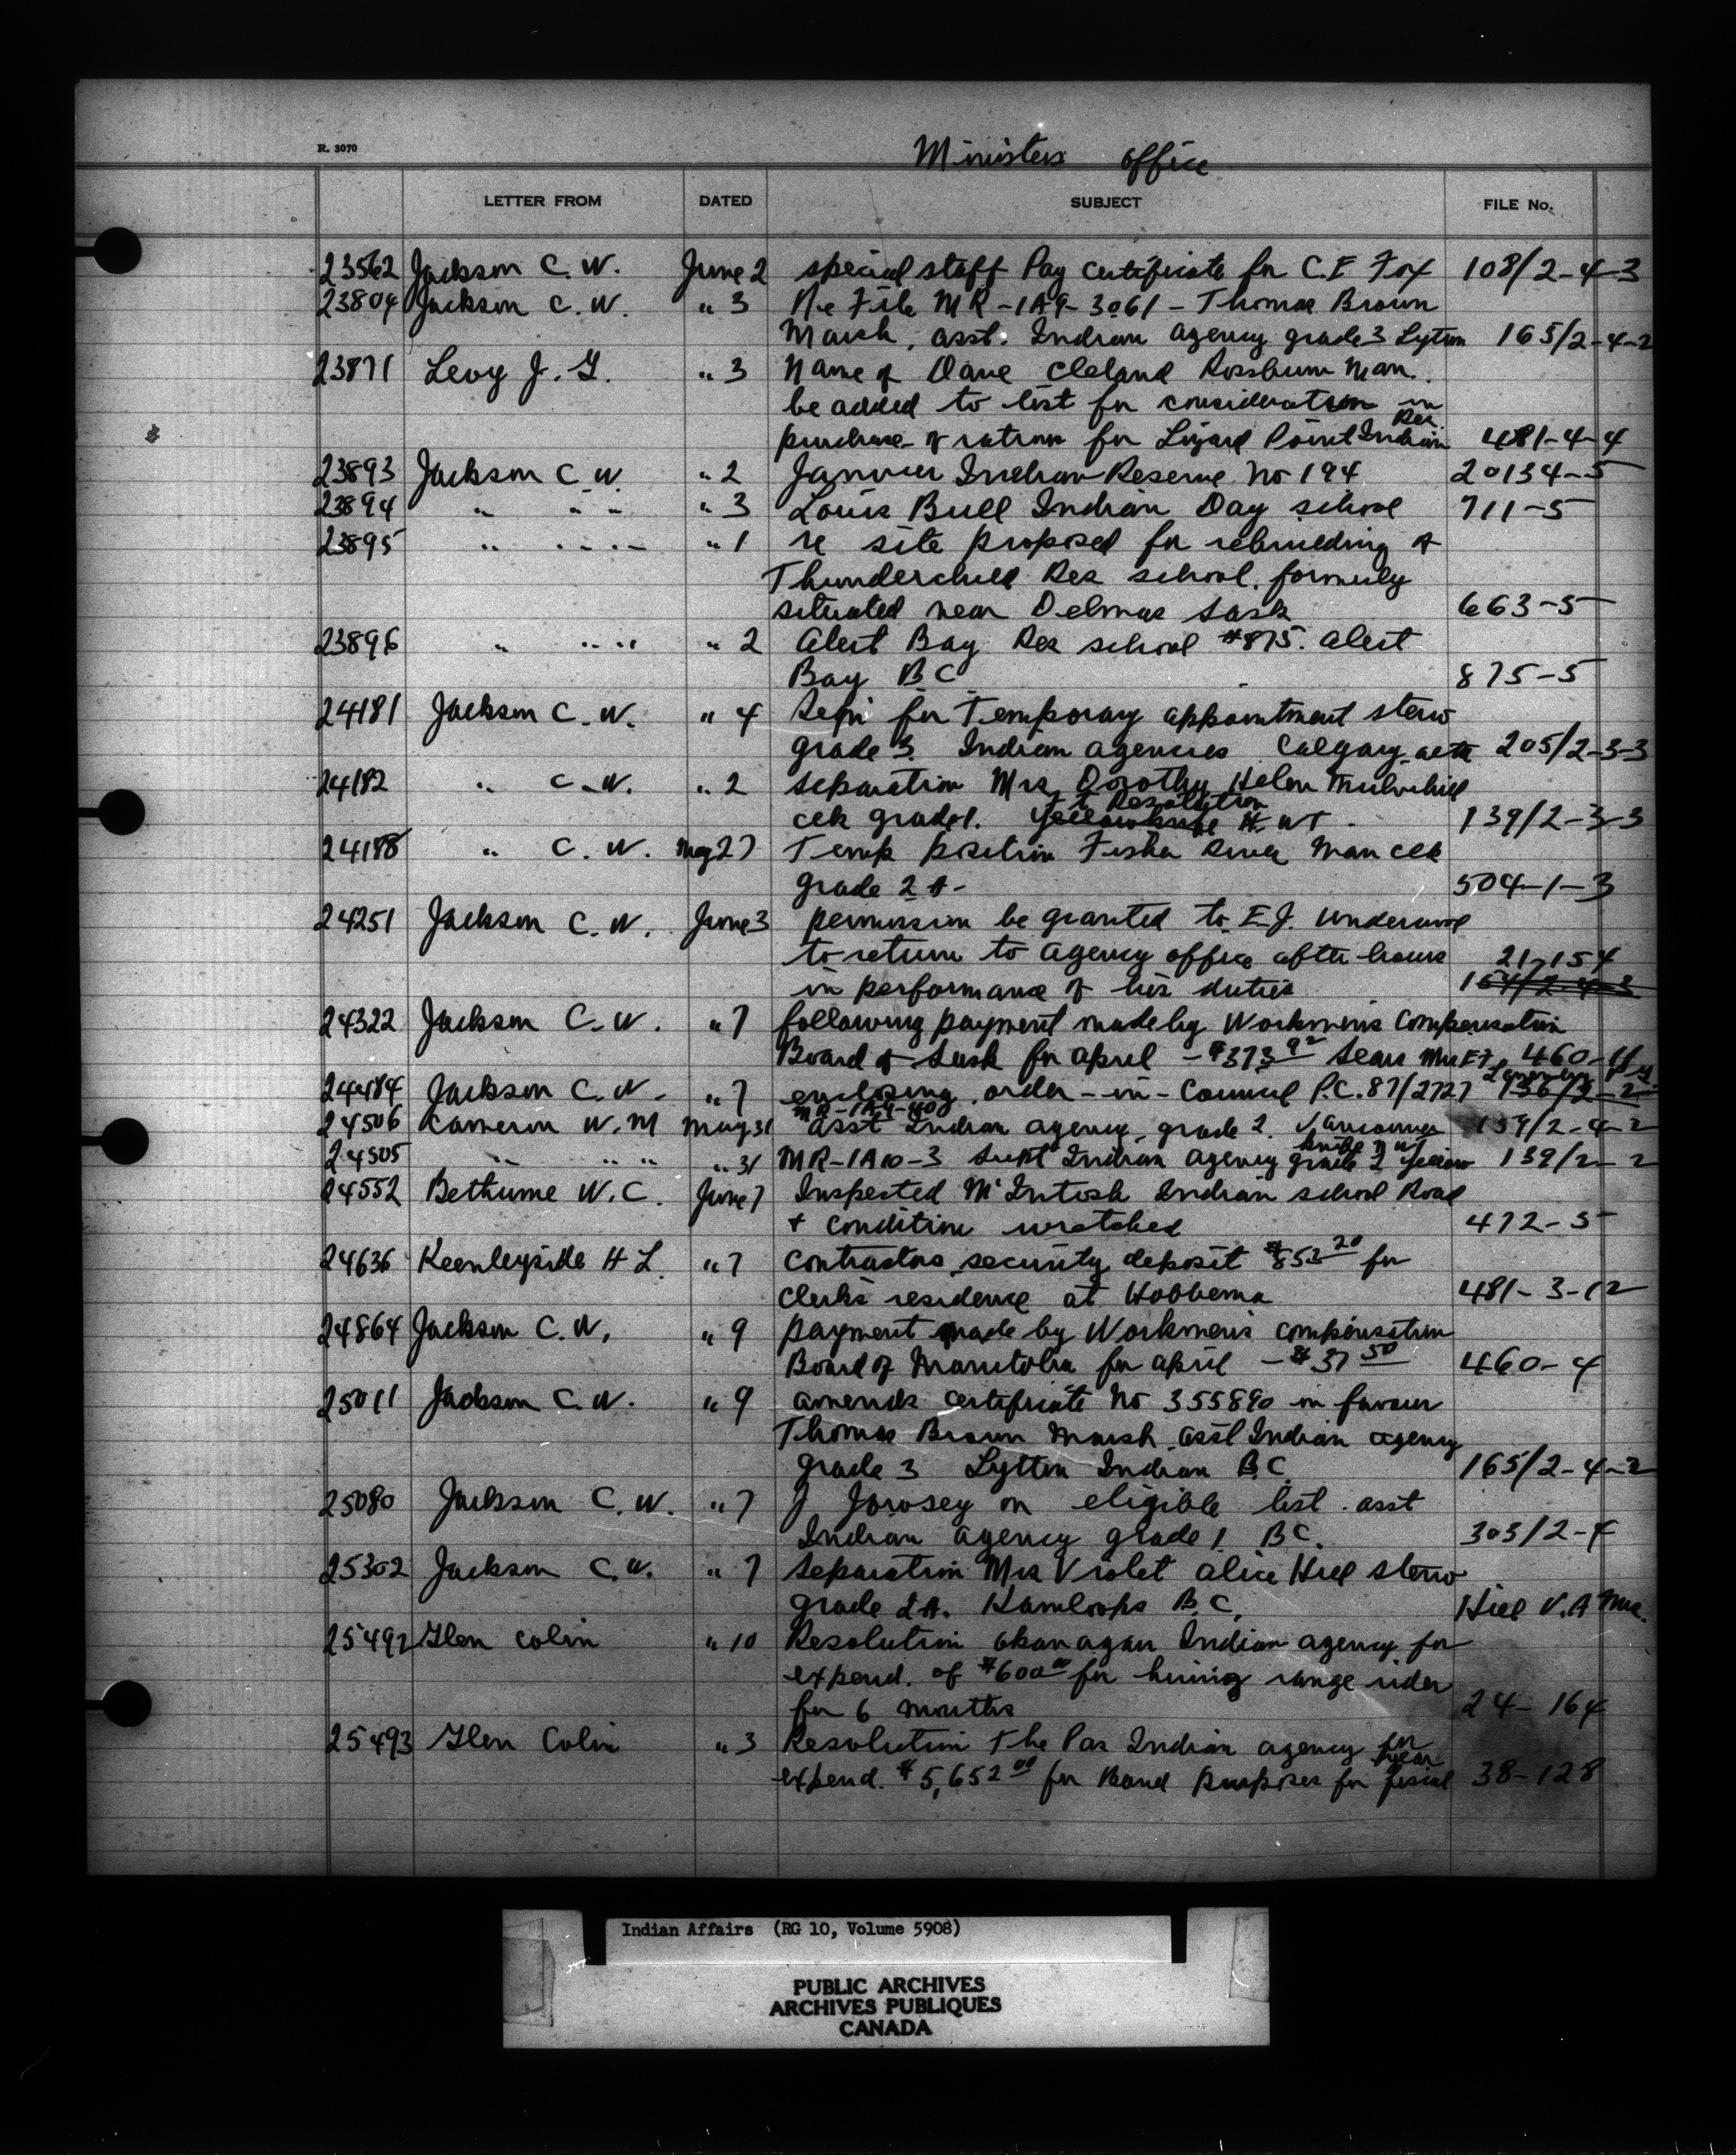 R. 3070
Ministers office
LETTER FROM DATED SUBJECT FILE No.
23562 Jackson C. W. June 2 special staff Pay certificate for C.E Fox 108/2-4-3
23804 Jackson C. W. " 3 Re File MR-1A9-3061 - Thomas Brown
Marsh. asst. Indian agency grade 3 Lytton 165/2-4-2
23871 Levy J. G. " 3 Name of Dave Cleland Rossburn Man.
be added to list for consideration in
Res.
purchase of rations for Lizard Point Indian 481-4-4
23893 Jackson C. W. " 2 Janvier Indian Reserve No 194 20134-5
23894 " " " " 3 Louis Bull Indian Day school 711-5
23895 " " " " 1 re site proposed for rebuilding of
Thunderchild Res school. formerly
situated near Delmas Sask 663-5
23896 " " " " 2 Alert Bay Res school #875. Alert
Bay BC 875-5
24181 Jackson C. W. " 4 for Temporary appointment steno
grade 3. Indian agencies Calgary alta 205/2-3-3
24182 " C. W. " 2 separation Mrs Dorothy Helen Mulvihill
Ft Resolution
clk grade 1. Yellowknife N. WT. 139/2-3-3
24188 " C. W. May 27 Temp position Fisher River Man clk
grade 2 A- 504-1-3
24251 Jackson C. W. June 3 permission be granted to E.J. Underwood
to return to agency office after hours 21-154
in performance of his duties 164/2-4-3
24322 Jackson C. W. " 7 following payment made by Workmen's Compensation
Board of Sask for April - $373 92 Sears Mrs E.F. 460-4
24484 Jackson C. W. " 7 enclosing order-in-Council P.C. 87/2727
MR-1A9-40
24506 Cameron W. M May 31 asst Indian agency grade 2. Vancouver 139/2-4-2
knife N WT
24505 " " " " 31 MR-1A10-3 Supt Indian Agency grade 2 Yellow 139/2-2
24552 Bethune W. C. June 7 Inspected McIntosh Indian school Road
+ condition wretched 472-5
24636 Keenleyside H L. " 7 contractors security deposit $853 20 for
Clerks residence at Hobbema 481-3-12
24864 Jackson C. W. " 9 payment made by Workmen's compensation
Board of Manitoba for April - $37 50 460-4
25011 Jackson C. W. " 9 amends certificate No 355890 in favour
Thomas Brown Marsh. asst Indian agency
grade 3 Lytton Indian B.C. 165/2-4-2
25080 Jackson C. W. " 7 J Jowsey on eligible list. asst
Indian agency grade 1. BC. 303/2-4
25302 Jackson C. W. " 7 Separation Mrs Violet Alice Hill steno
grade 2A. Kamloops B.C. Hill V. A Mrs.
25492 Glen Colin " 10 Resolution Okanagan Indian agency for
expend. of $600 00 for hiring range rider
for 6 months 24-164
25493 Glen Colin " 3 Resolution The Pas Indian agency for
year
expend. $5,652 00 for Band purposes for fiscal 38-128
Indian Affairs (RG 10, Volume 5908)
PUBLIC ARCHIVES
ARCHIVES PUBLIQUES
CANADA